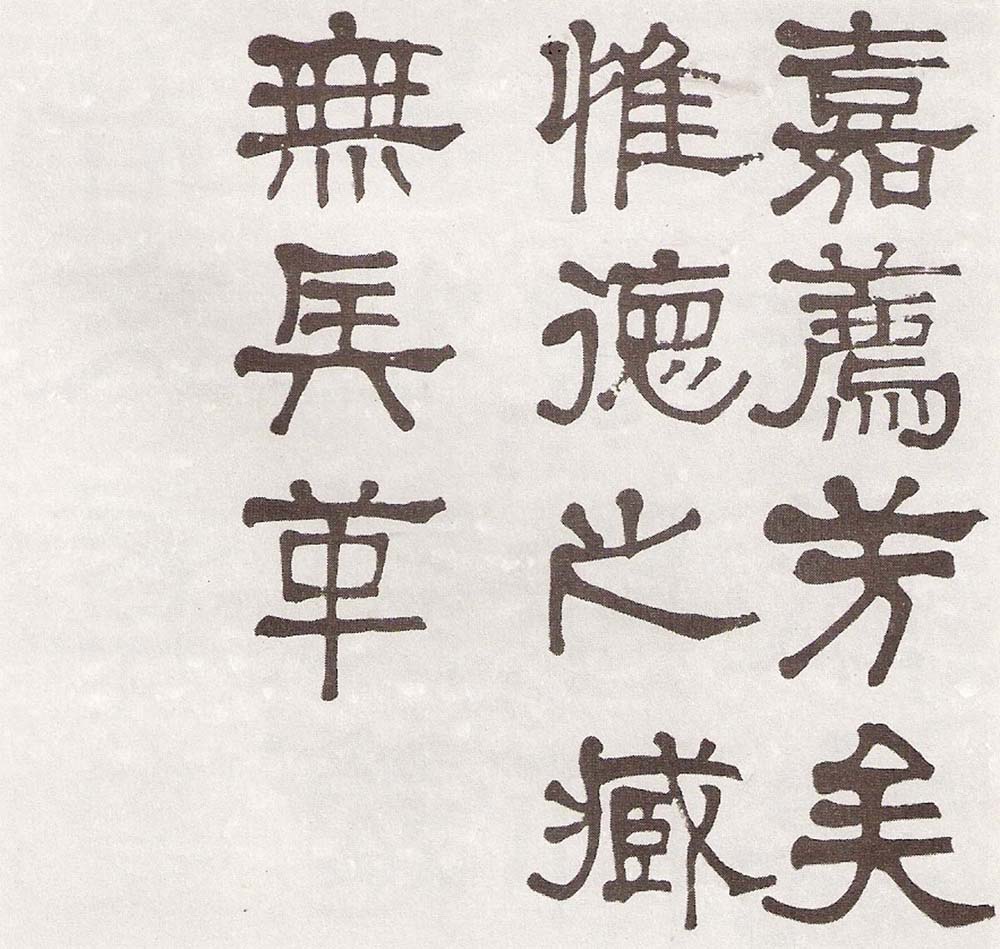 嘉薦芳美
惟德之臧
無兵革